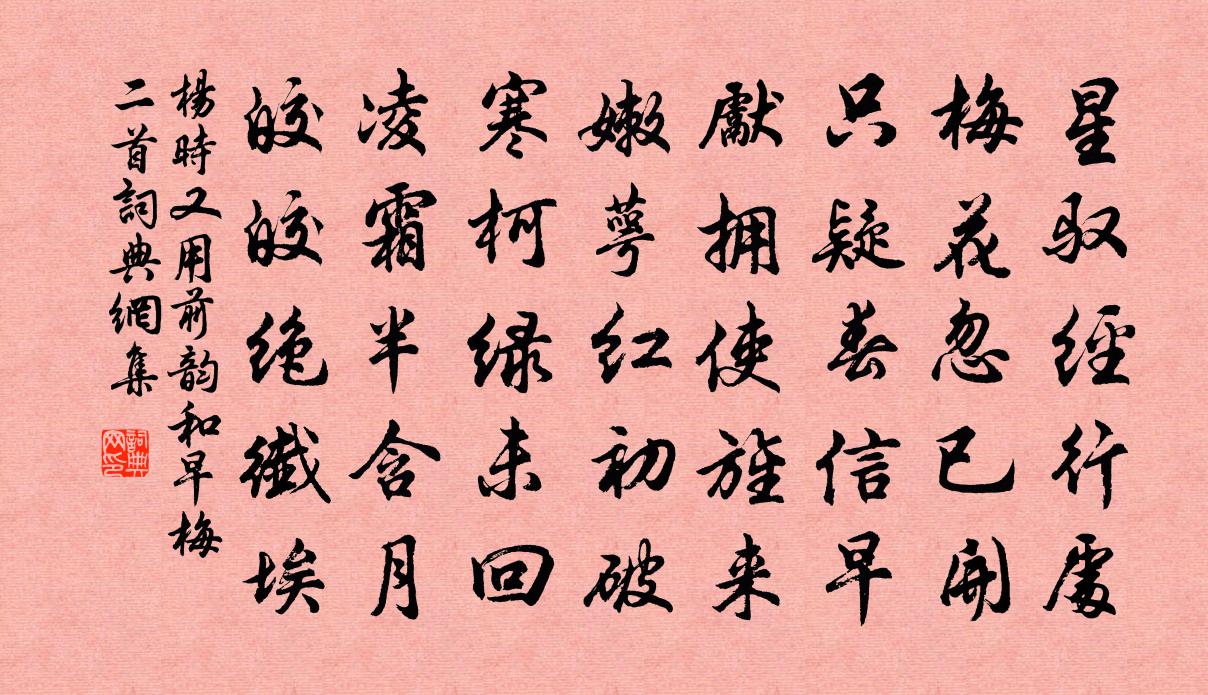 星驭經行處
梅花忽已開
只疑春信早
獻拥使旌来
嫩萼红初破
寒柯绿未回
凌霜半含月
皎皎绝纖埃
楊時又用前韵和早梅
二首詞典網集
詞典网印